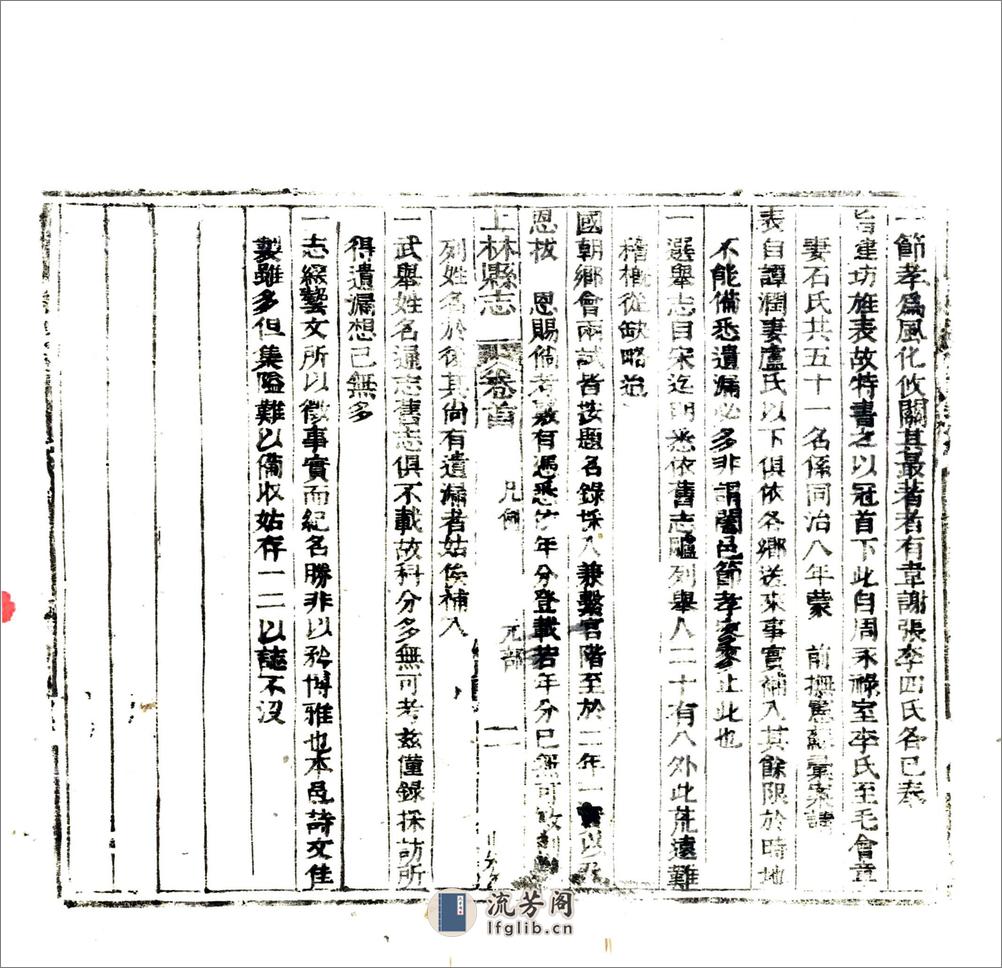 一節孝爲風化攸關其最著者有韋謝張李四氏各已奉
旨建坊旌表故特書之以冠首下此自周永祿室李氏至毛會章
妻石氏共五十一名係同治八年蒙 前撫憲蘇彙案請
表自譚潤妻盧氏以下俱依各鄉送來事實補入其餘限於時地
不能備悉遺漏必多非謂闔邑節孝寥寥止此也
一選舉志自宋迄明悉依舊志臚列舉人二十有八外此荒遠難
稽概從缺略迨
國朝鄉會兩試皆按題名錄採入兼繫官階至於二年一貢以及
恩拔 恩賜倘考覈有憑悉分年分登載若年分已無可攷
上林縣志 卷首 凡例 元部 二
列姓名於後其尚有遺漏者姑俟補入
一武舉姓名通志舊志俱不載故科分多無可考茲僅錄採訪所
得遺漏想已無多
一志綴藝文所以徵事實而紀名勝非以矜博雅也本邑詩文佳
製雖多但集隘難以備收姑存一二以誌不沒
流芳阁
lfglib.cn